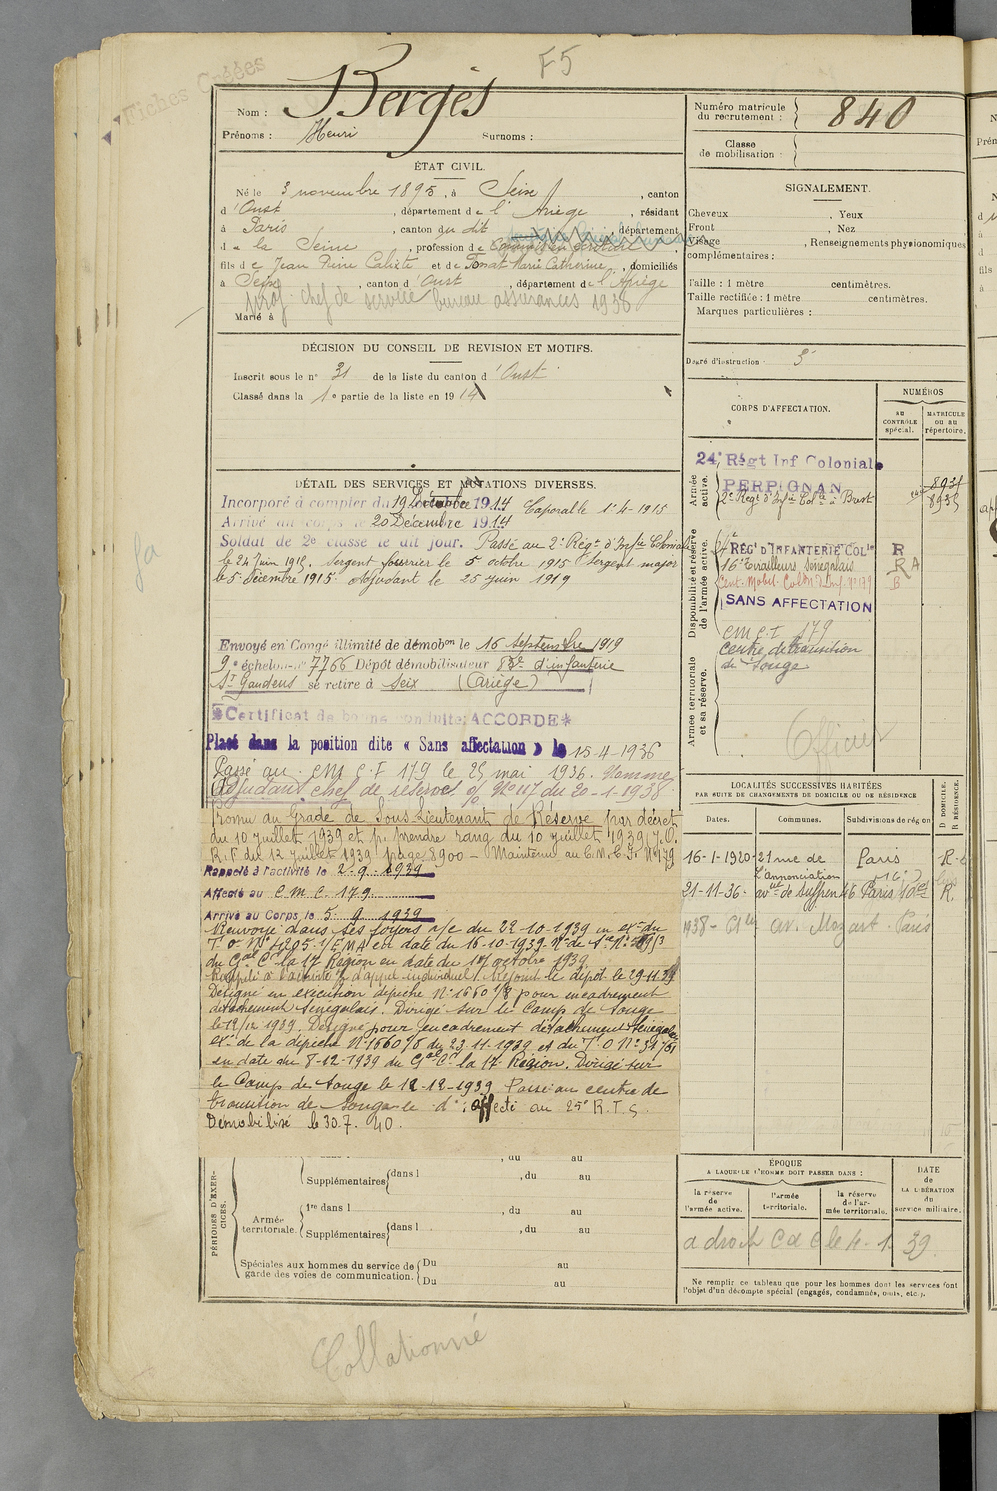 Fiches Créées
F5
Nom : Bergès
Prénoms : Henri Surnoms :
Numéro matricule
du recrutement : 840
Classe
de mobilisation :
ÉTAT CIVIL.
Né le 3 novembre 1895, à Seix, canton
d'Oust, département de l'Ariège, résidant
à Paris, canton du dit, département
de la Seine, profession de
fils de Jean Pierre Calixte et de Marie Catherine, domiciliés
à Seix, canton d'Oust, département de l'Ariège
prof. chef de service bureau assurances 1938
Marié à
SIGNALEMENT.
Cheveux , Yeux
Front , Nez
Visage , Renseignements physionomiques
complémentaires :
Taille : 1 mètre centimètres.
Taille rectifiée : 1 mètre centimètres.
Marques particulières :
Degré d'instruction : 3
DÉCISION DU CONSEIL DE REVISION ET MOTIFS.
Inscrit sous le n° 31 de la liste du canton d'Oust
Classé dans la 1e partie de la liste en 1914
CORPS D'AFFECTATION.
NUMÉROS
au
CONTRÔLE
spécial.
MATRICULE
ou au
répertoire.
Armée
active.
24e Régt Inf Coloniale
PERPIGNAN
2e Régt d'Infie Colle à Brest
8935
Disponibilité et réserve
de l'armée active.
RÉGt D'INFANTERIE COLle R
16e Tirailleurs Sénégalais RA
B
SANS AFFECTATION
CMCT 179
Centre de transition
de Souge
Armée territoriale
et sa réserve.
Officier
DÉTAIL DES SERVICES ET MUTATIONS DIVERSES.
Incorporé à compter du 19 Décembre 1914 Caporal le 1-4-1915
Arrivé au corps le 20 Décembre 1914
Soldat de 2e classe le dit jour. Passé au 2e Régt d'Infie Coloniale
le 24 Juin 1915. Sergent fourrier le 5 octobre 1915 Sergent major
le 5 Décembre 1915. Adjudant le 25 juin 1919
Envoyé en Congé illimité de démobon le 16 Septembre 1919
9e échelon n° 7766 Dépôt démobilisateur d'infanterie
St Gaudens se retire à Seix (Ariège)
Certificat de bonne conduite: ACCORDÉ
Placé dans la position dite « Sans affectation » le 15-4-1936
Passé au CM C.I 179 le 25 mai 1936. Nommé
Adjudant chef de réserves N° 117 du 20-1-1938
Promu au Grade de Sous-Lieutenant de Réserve par décret
du 10 juillet 1939 et p. prendre rang du 10 juillet 1939 J.O.
R.F du 12 juillet 1939 page 8900 - Maintenu au C.M.C.I. N° 179
Rappelé à l'activité le 2.9.1939
Affecté au C M C 179
Arrivé au Corps le 5 9 1939
Renvoyé dans ses foyers le 22-10-1939 en exon du
T.O N° 4205 /EMA en date du 16-10-1939
du Gal Ct la 17 Région en date du octobre 1939
Rappelé à l'activité d'appel individuel. Rejoint le dépôt le 29-11-39
Désigné en exécution dépêche N° 1660 1/8 pour encadrement
détachement Sénégalais. Dirigé sur le Camp de Souge
le 12/12 1939. Désigné pour encadrement détachement Sénégalais
exon de la dépêche N° 1660/8 du 23-11-1939 et du T.O N°
en date du 8-12-1939 du Gal Ct la 17 Région. Dirigé sur
le Camp de Souge le 12-12-1939 Passé au centre de
transition de Souge le d°. affecté au 25e R.T.S.
Démobilisé le 30.7.40.
LOCALITÉS SUCCESSIVES HABITÉES
PAR SUITE DE CHANGEMENTS DE DOMICILE OU DE RÉSIDENCE
Dates. Communes. Subdivisions de région D DOMICILE. R RÉSIDENCE.
16-1-1920 21 rue de l'Annonciation Paris (16e) R
21-11-36 avue de Suffren 46 Paris R
1938 av. Mozart Paris
PÉRIODES D'EXERCICES.
, du au
Supplémentaires dans l , du au
Armée
territoriale.
1re dans l , du au
Supplémentaires dans l , du au
Spéciales aux hommes du service de
garde des voies de communication.
Du au
Du au
ÉPOQUE
A LAQUELLE L'HOMME DOIT PASSER DANS :
la réserve
de
l'armée active.
l'armée
territoriale.
la réserve
de l'armée territoriale.
DATE
de
LA LIBÉRATION
du
service militaire.
a droit C d C le 4-1-39
Ne remplir ce tableau que pour les hommes dont les services font
l'objet d'un décompte spécial (engagés, condamnés, omis, etc.).
Collationné